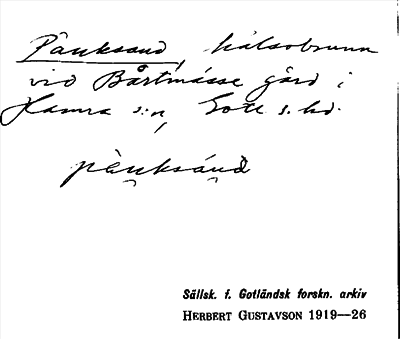 Pänksand, hälsobrunn
vid Bårtmässe gård i
Hamra s:n, Gotl s. hd.
pänksánd
Sällsk. f. Gotländsk forskn. arkiv
HERBERT GUSTAVSON 1919—26